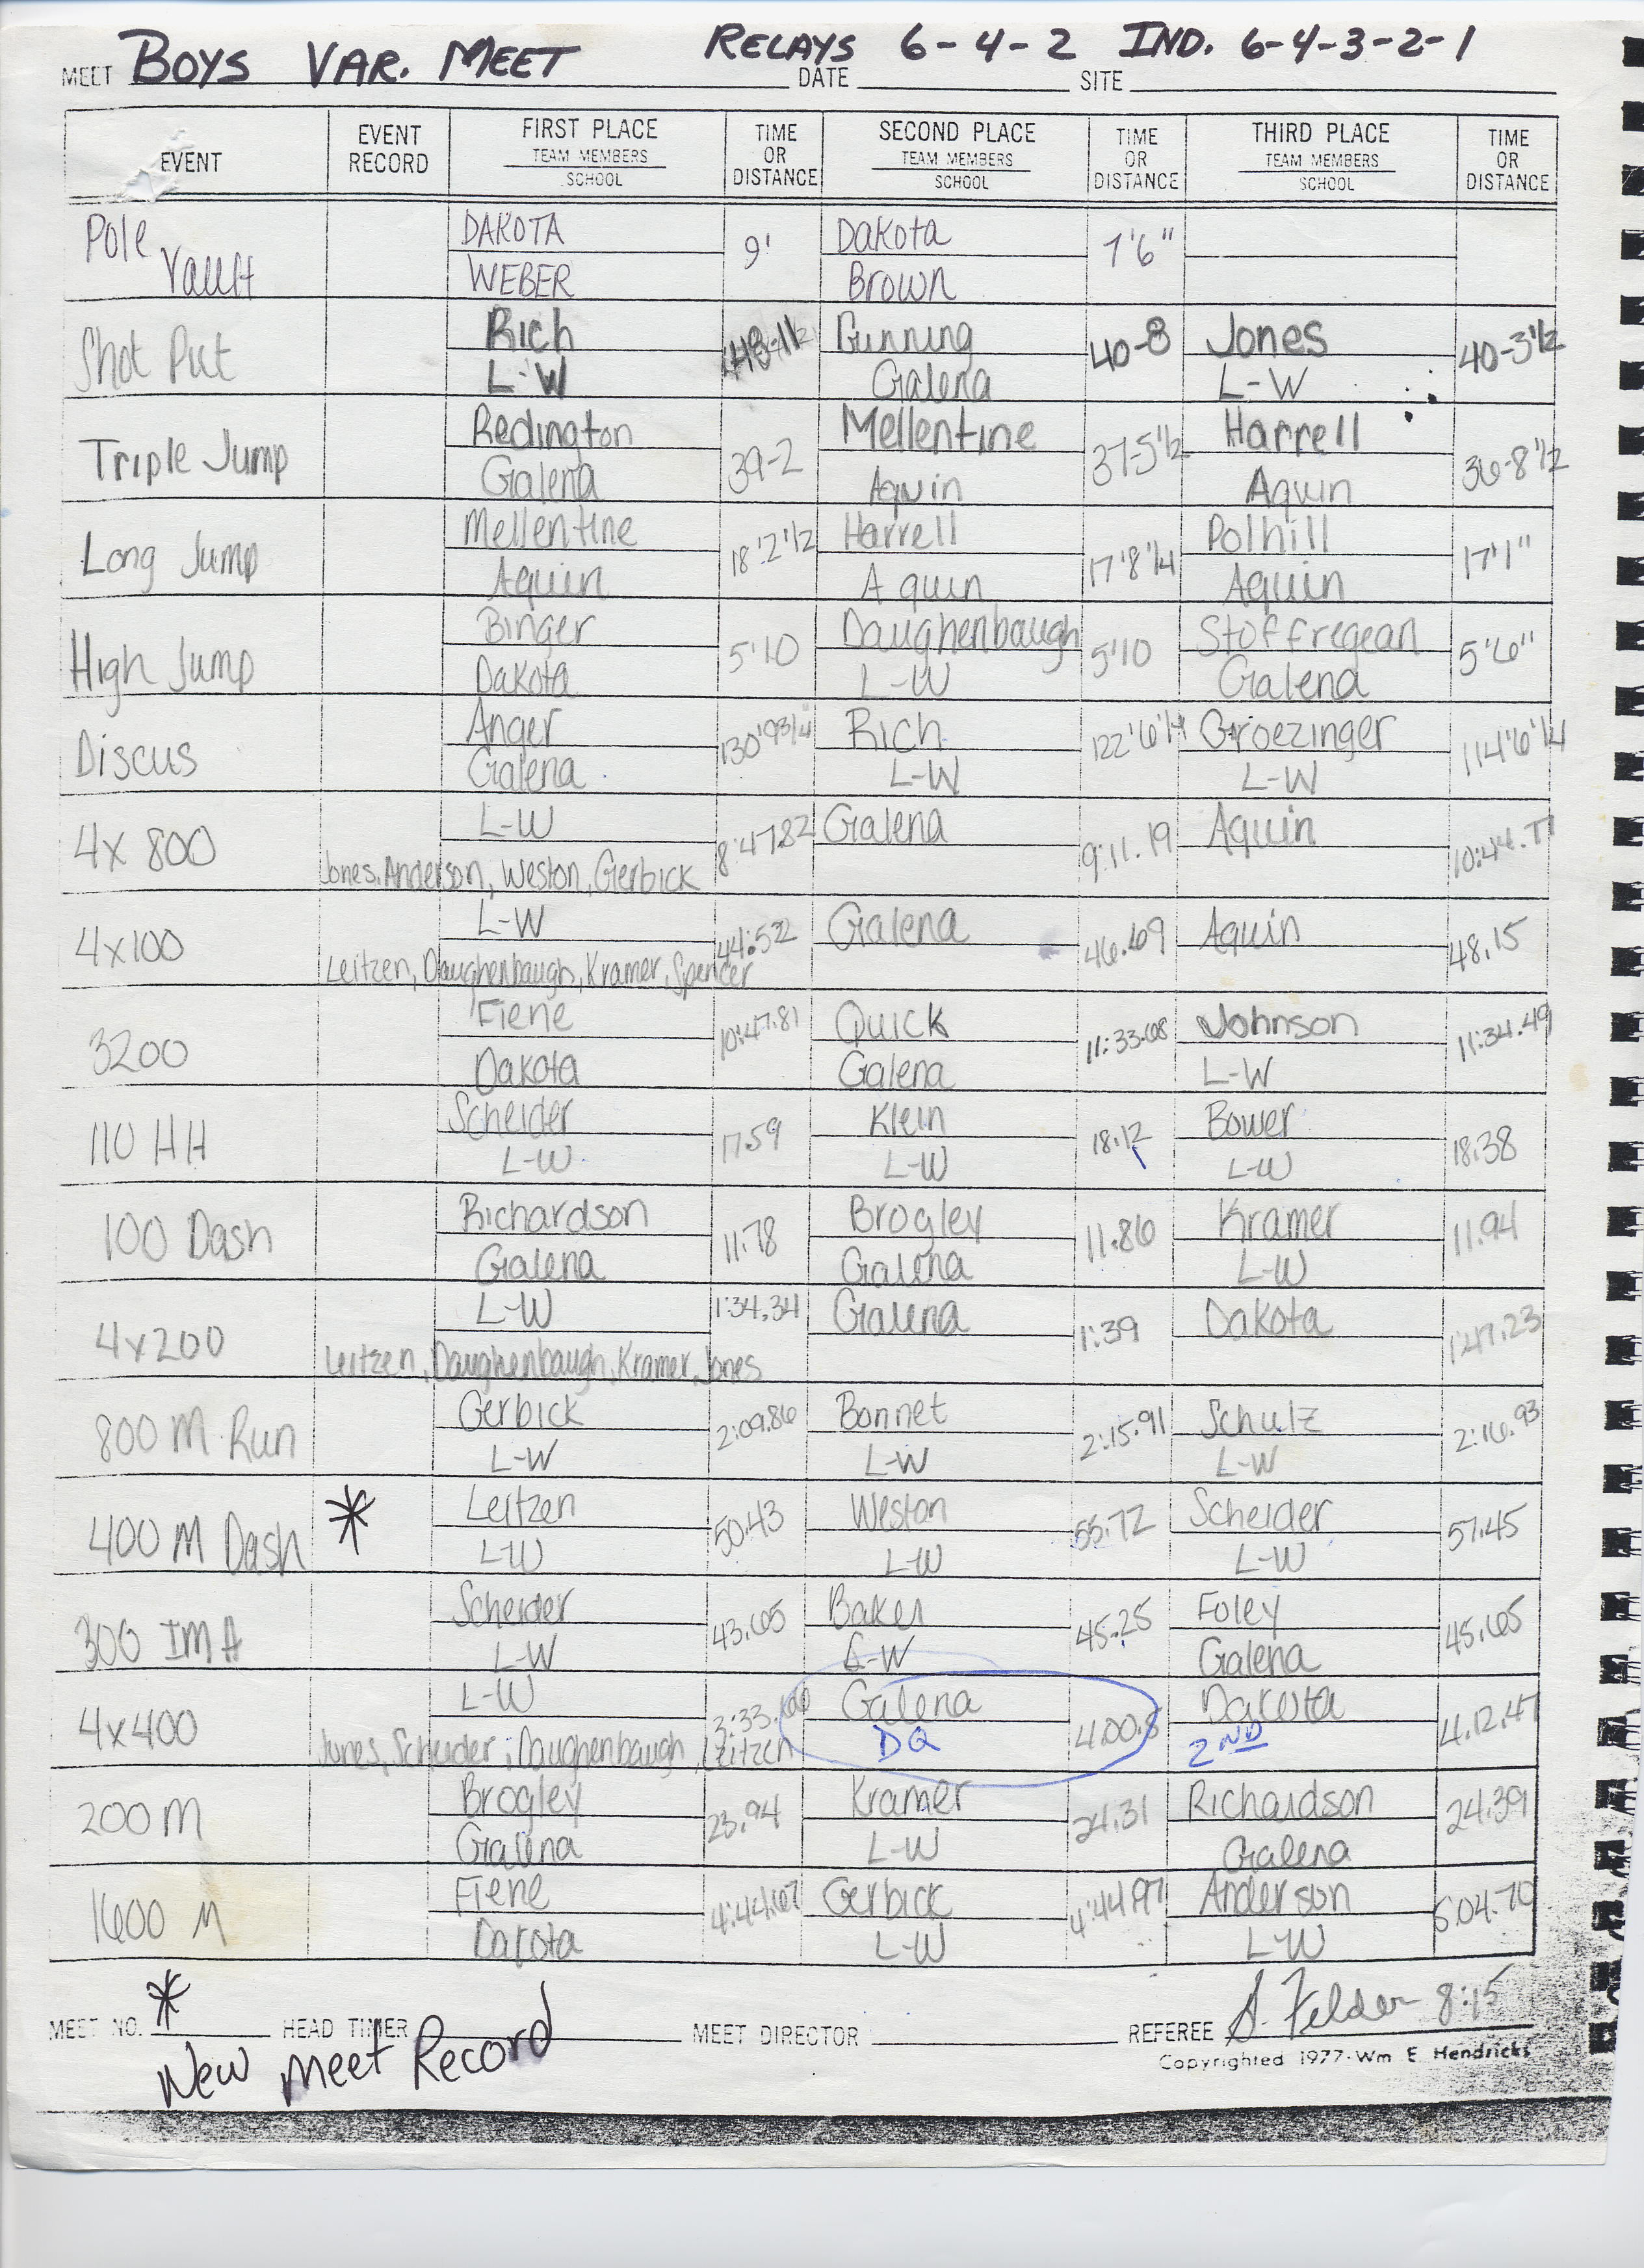 BOYS VAR. MEET RELAYS 6-4-2 IND. 6-4-3-2-1
MEET DATE SITE
EVENT
EVENT RECORD
FIRST PLACE TEAM MEMBERS SCHOOL
TIME OR DISTANCE
SECOND PLACE TEAM MEMBERS SCHOOL
TIME OR DISTANCE
THIRD PLACE TEAM MEMBERS SCHOOL
TIME OR DISTANCE
Pole Vault DAKOTA 9' Dakota 7'6"
WEBER Brown
Shot Put Rich Gunning 40-8 Jones 40-3 1/2
L-W Galena L-W
Triple Jump Redington 39-2 Mellentine 37-5 1/2 Harrell 36-8 1/2
Galena Aquin Aquin
Long Jump Mellentine 18'2 1/2 Harrell 17'8 1/4 Polhill 17'1"
Aquin Aquin Aquin
High Jump Binger 5'10 Daughenbaugh 5'10 Stoffregean 5'6"
Dakota L-W Galena
Discus Anger 130'9 3/4" Rich 122'6 1/4 Groezinger 114'6 1/4
Galena L-W L-W
4x 800 L-W 8:47.82 Galena 9:11.19 Aquin
Jones, Anderson, Weston, Gerbick
4x100 L-W 44.52 Galena 46.69 Aquin 48.15
Leitzen, Daughenbaugh, Kramer, Spencer
3200 Fiene 10:47.81 Quick 11:33.68 Johnson 11:34.49
Dakota Galena L-W
110 HH Scheider 17.59 Klein 18.12 Bower 18.38
L-W L-W L-W
100 Dash Richardson 11.78 Brogley 11.86 Kramer 11.94
Galena Galena L-W
4x200 L-W 1:34.34 Galena 1:39 Dakota 1:47.23
Leitzen, Daughenbaugh, Kramer, Jones
800 M Run Gerbick 2:09.86 Bonnet 2:15.91 Schulz 2:16.93
L-W L-W L-W
400 M Dash * Leitzen 50.43 Weston 55.72 Scheider 57.45
L-W L-W L-W
300 IM H Scheider 43.65 Baker 45.25 Foley 45.65
L-W L-W Galena
4x400 L-W 3:33.60 Galena 4:00.8 Dakota 4:12.47
Jones, Scheider, Daughenbaugh, Leitzen DQ 2ND
200 M Brogley 23.94 Kramer 24.31 Richardson 24.39
Galena L-W Galena
1600 M Fiene 4:44.67 Gerbick 4:44.97 Anderson 5:04.70
Dakota L-W L-W
MEET NO. * HEAD TIMER MEET DIRECTOR REFEREE S. Felder 8:15
New Meet Record
Copyrighted 1977-Wm E Hendricks